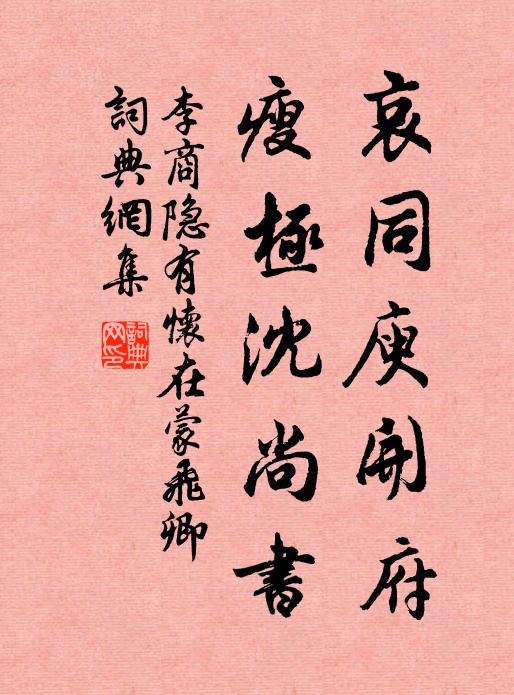 哀同庾開府
瘦極沈尚書
李商隐有懷在蒙飛卿
詞典網集
詞典网印